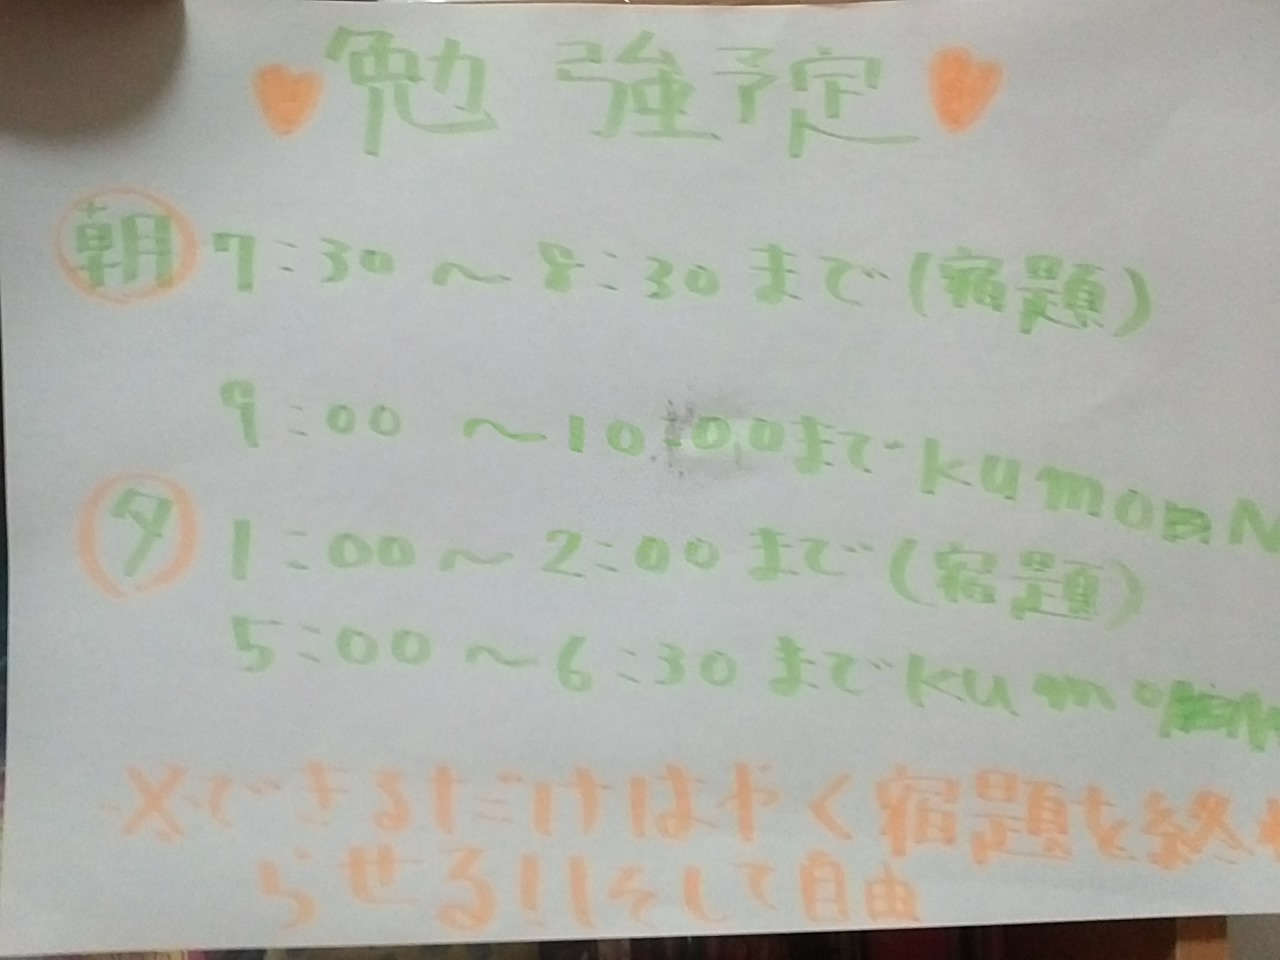 勉強予定
朝 7:30 〜 8:30 まで (宿題)
9:00 〜 10:00 まで KUMON
夕 1:00 〜 2:00 まで (宿題)
5:00 〜 6:30 まで KUMON
※できるだけはやく宿題を終わ
らせる!!そして自由